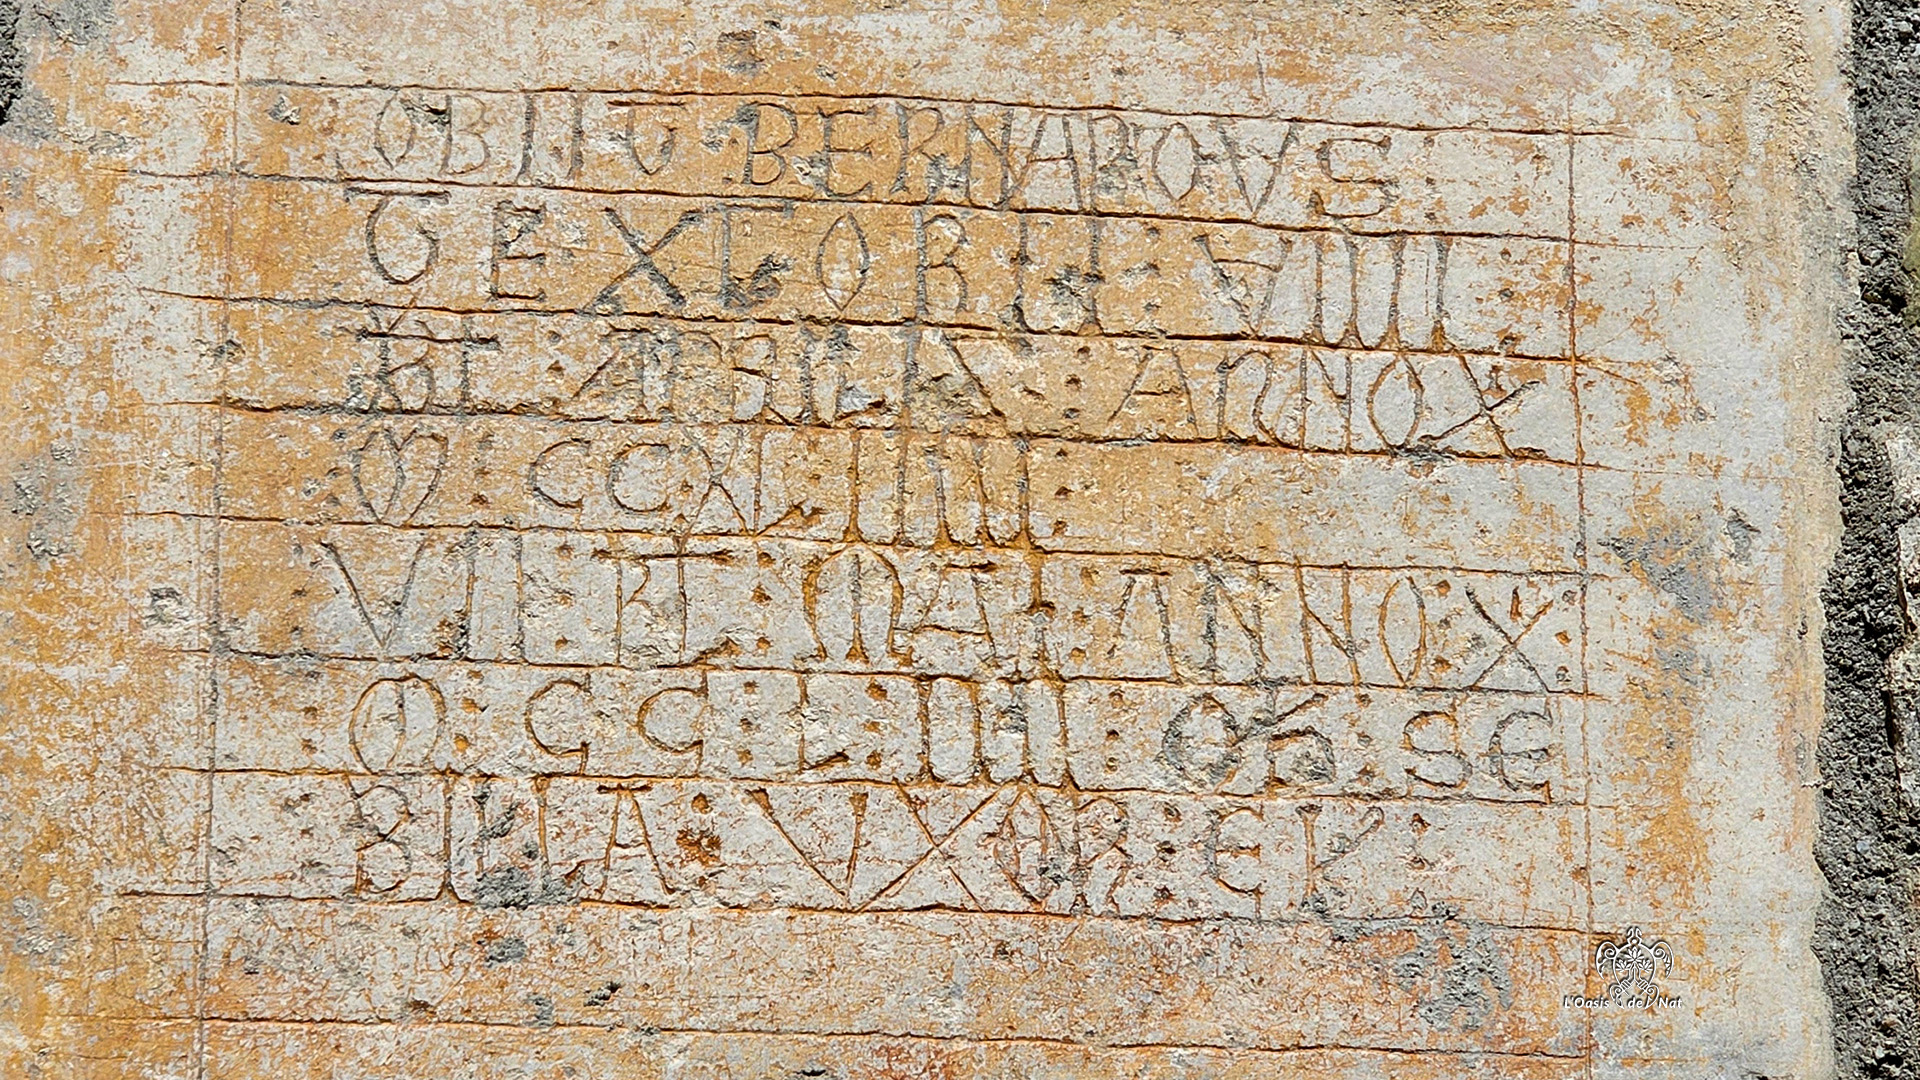 OBIIT BERNARDVS
TEXTORII : VIIII :
KL : APRILIS : ANNO X
M : CCXLIIII :
VII : KL : MAI : ANNO : X :
M : CC : L : IIII : OR : SE
BILIA : VXOR : EI
L'Oasis de Nat